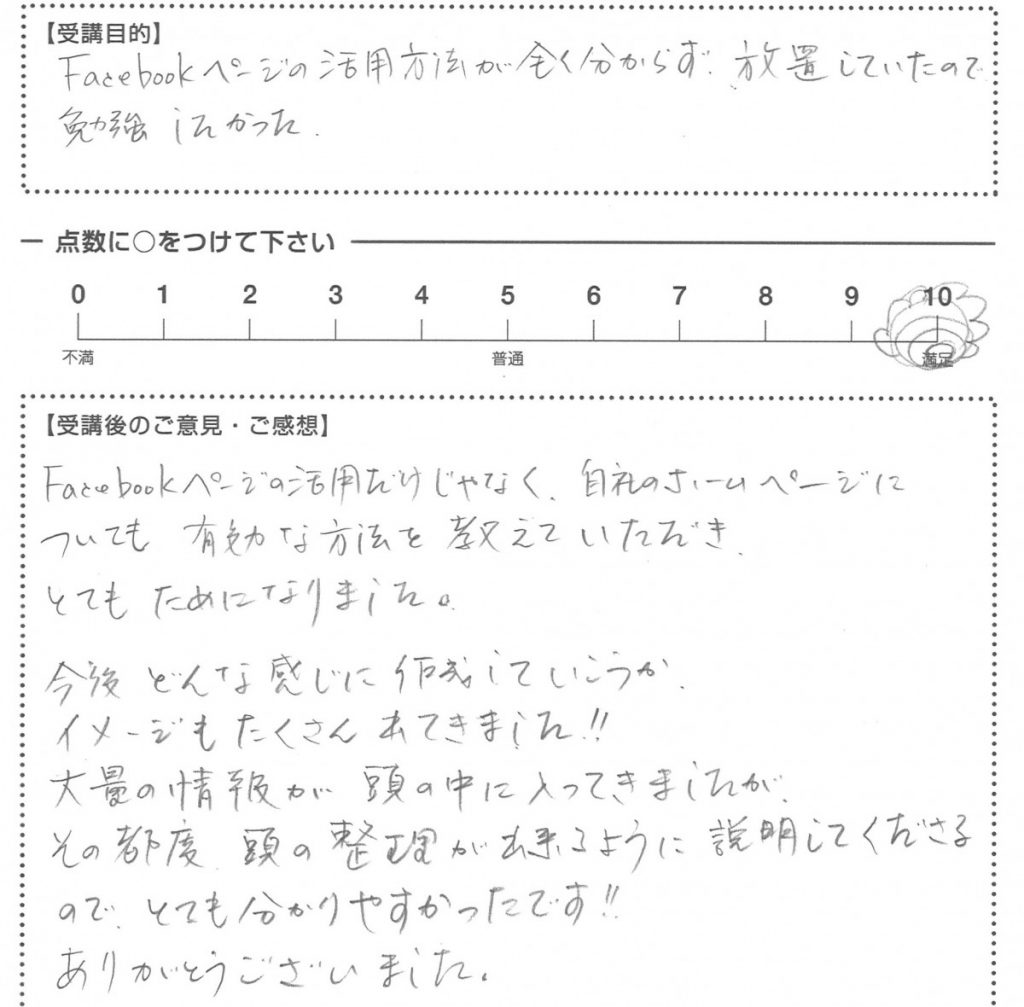 【受講目的】
Facebookページの活用方法が全く分からず、放置していたので
勉強したかった.
点数に○をつけて下さい
0 1 2 3 4 5 6 7 8 9 10
不満 普通 満足
【受講後のご意見・ご感想】
Facebookページの活用だけじゃなく、自社のホームページに
ついても 有効な方法を 教えていただき、
とても ためになりました。
今後 どんな感じに 作成していこうか、
イメージも たくさん 出てきました!!
大量の情報が 頭の中に入ってきましたが、
その都度 頭の整理が出来るように 説明してくださる
ので、とても分かりやすかったです!!
ありがとうございました。